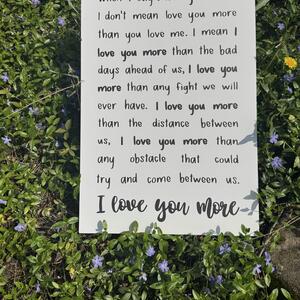 When I say I
I don't mean love you more
than you love me. I mean I
love you more than the bad
days ahead of us, I love you
more than any fight we will
ever have. I love you more
than the distance between
us, I love you more than
any obstacle that could
try and come between us.
I love you more